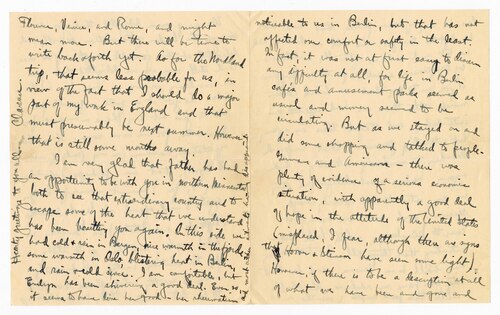 Florence, Venice, and Rome, and might
mean more. But there will be time to
write back & forth yet. As for the Nordland
trip, that seems less probable for us, in
view of the fact that I should do a major
part of my work in England and that
must presumably be next summer. However
that is still some months away.
I am very glad that father has had
an opportunity to be with you in northern
both to see that extraordinary country and to
escape some of the heat that we understand
has been beating you again. On this side we
had cold & rain in Bergen, nice warmth in the fjords,
some warmth in Oslo, blistering heat in Berlin,
and rain & cold since. I am comfortable, but
Evelyn has been shivering a good deal. Even so
it seems to have done her good - her rheumatism
Hearty greetings to you all Clarence
noticeable to us in Berlin, but that has not
affected our comfort or safety in the least.
In fact, it was not at first easy to discern
any difficulty at all, for life in Berlin
cafés and amusement parks seemed as
usual and money seemed to be
circulating. But as we stayed on and
did some shopping and talked to people -
Germans and Americans - there was
plenty of evidence of a serious economic
situation, with apparently a good deal
of hope in the attitude of the United States
(misplaced, I fear, although there are signs
that Hoover & Stimson have seen some light).
However, if there is to be a description at all
of what we have been and gone and